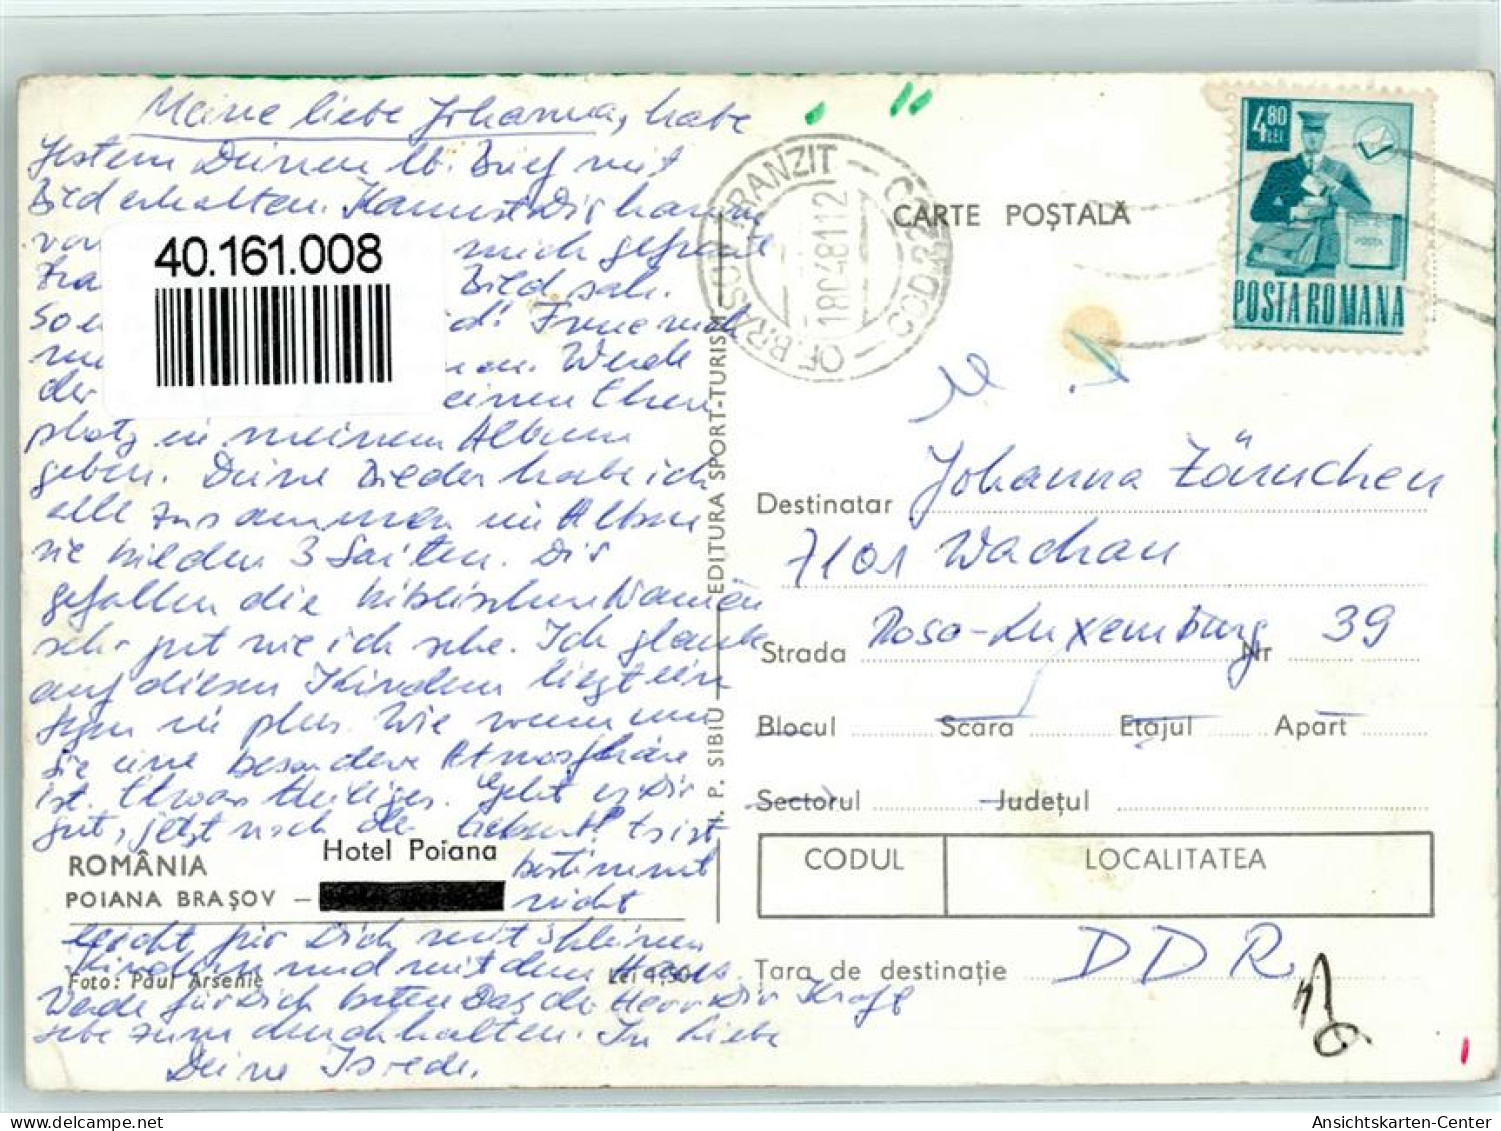 Meine liebe Johanna, habe
gestern Deinen lb. Brief mit
Bild erhalten. Kannst Dir
mich gefreut
40.161.008
Bild sah.
So
Werde
der einen Ehren
platz in meinem Album
geben. Deine Lieder habe ich
alle zusammen im Album
sie bilden 3 Seiten. Dir
gefallen die biblischen Namen
sehr gut wie ich sehe. Ich glaube
auf diesen Kindern liegt ein
Segen in plus. Wie wenn um
sie eine besondere Atmosphäre
ist. Etwas Heiliges. Geht es Dir
gut, jetzt nach der Geburt? Es ist
bestimmt
nicht
leicht für Dich mit 3 kleinen
Kindern und mit dem Haus.
Werde für Dich beten Das der Herr Dir Kraft
gebe zum durchhalten. In Liebe
Deine
ROMÂNIA
Hotel Poiana
POIANA BRAŞOV –
Foto: Paul Arsenie
Lei 1,50
I. P. SIBIU — EDITURA SPORT-TURISM
OF. BRAŞOV TRANZIT — COD 22
18048112
CARTE POŞTALĂ
4,80 LEI
POSTA
POSTA ROMANA
Destinatar Johanna Zärnchen
7101 Wachau
Strada Rosa-Luxemburg Nr 39
Blocul Scara Etajul Apart
Sectorul Judeţul
CODUL LOCALITATEA
Ţara de destinaţie DDR
Ansichtskarten-Center
www.delcampe.net